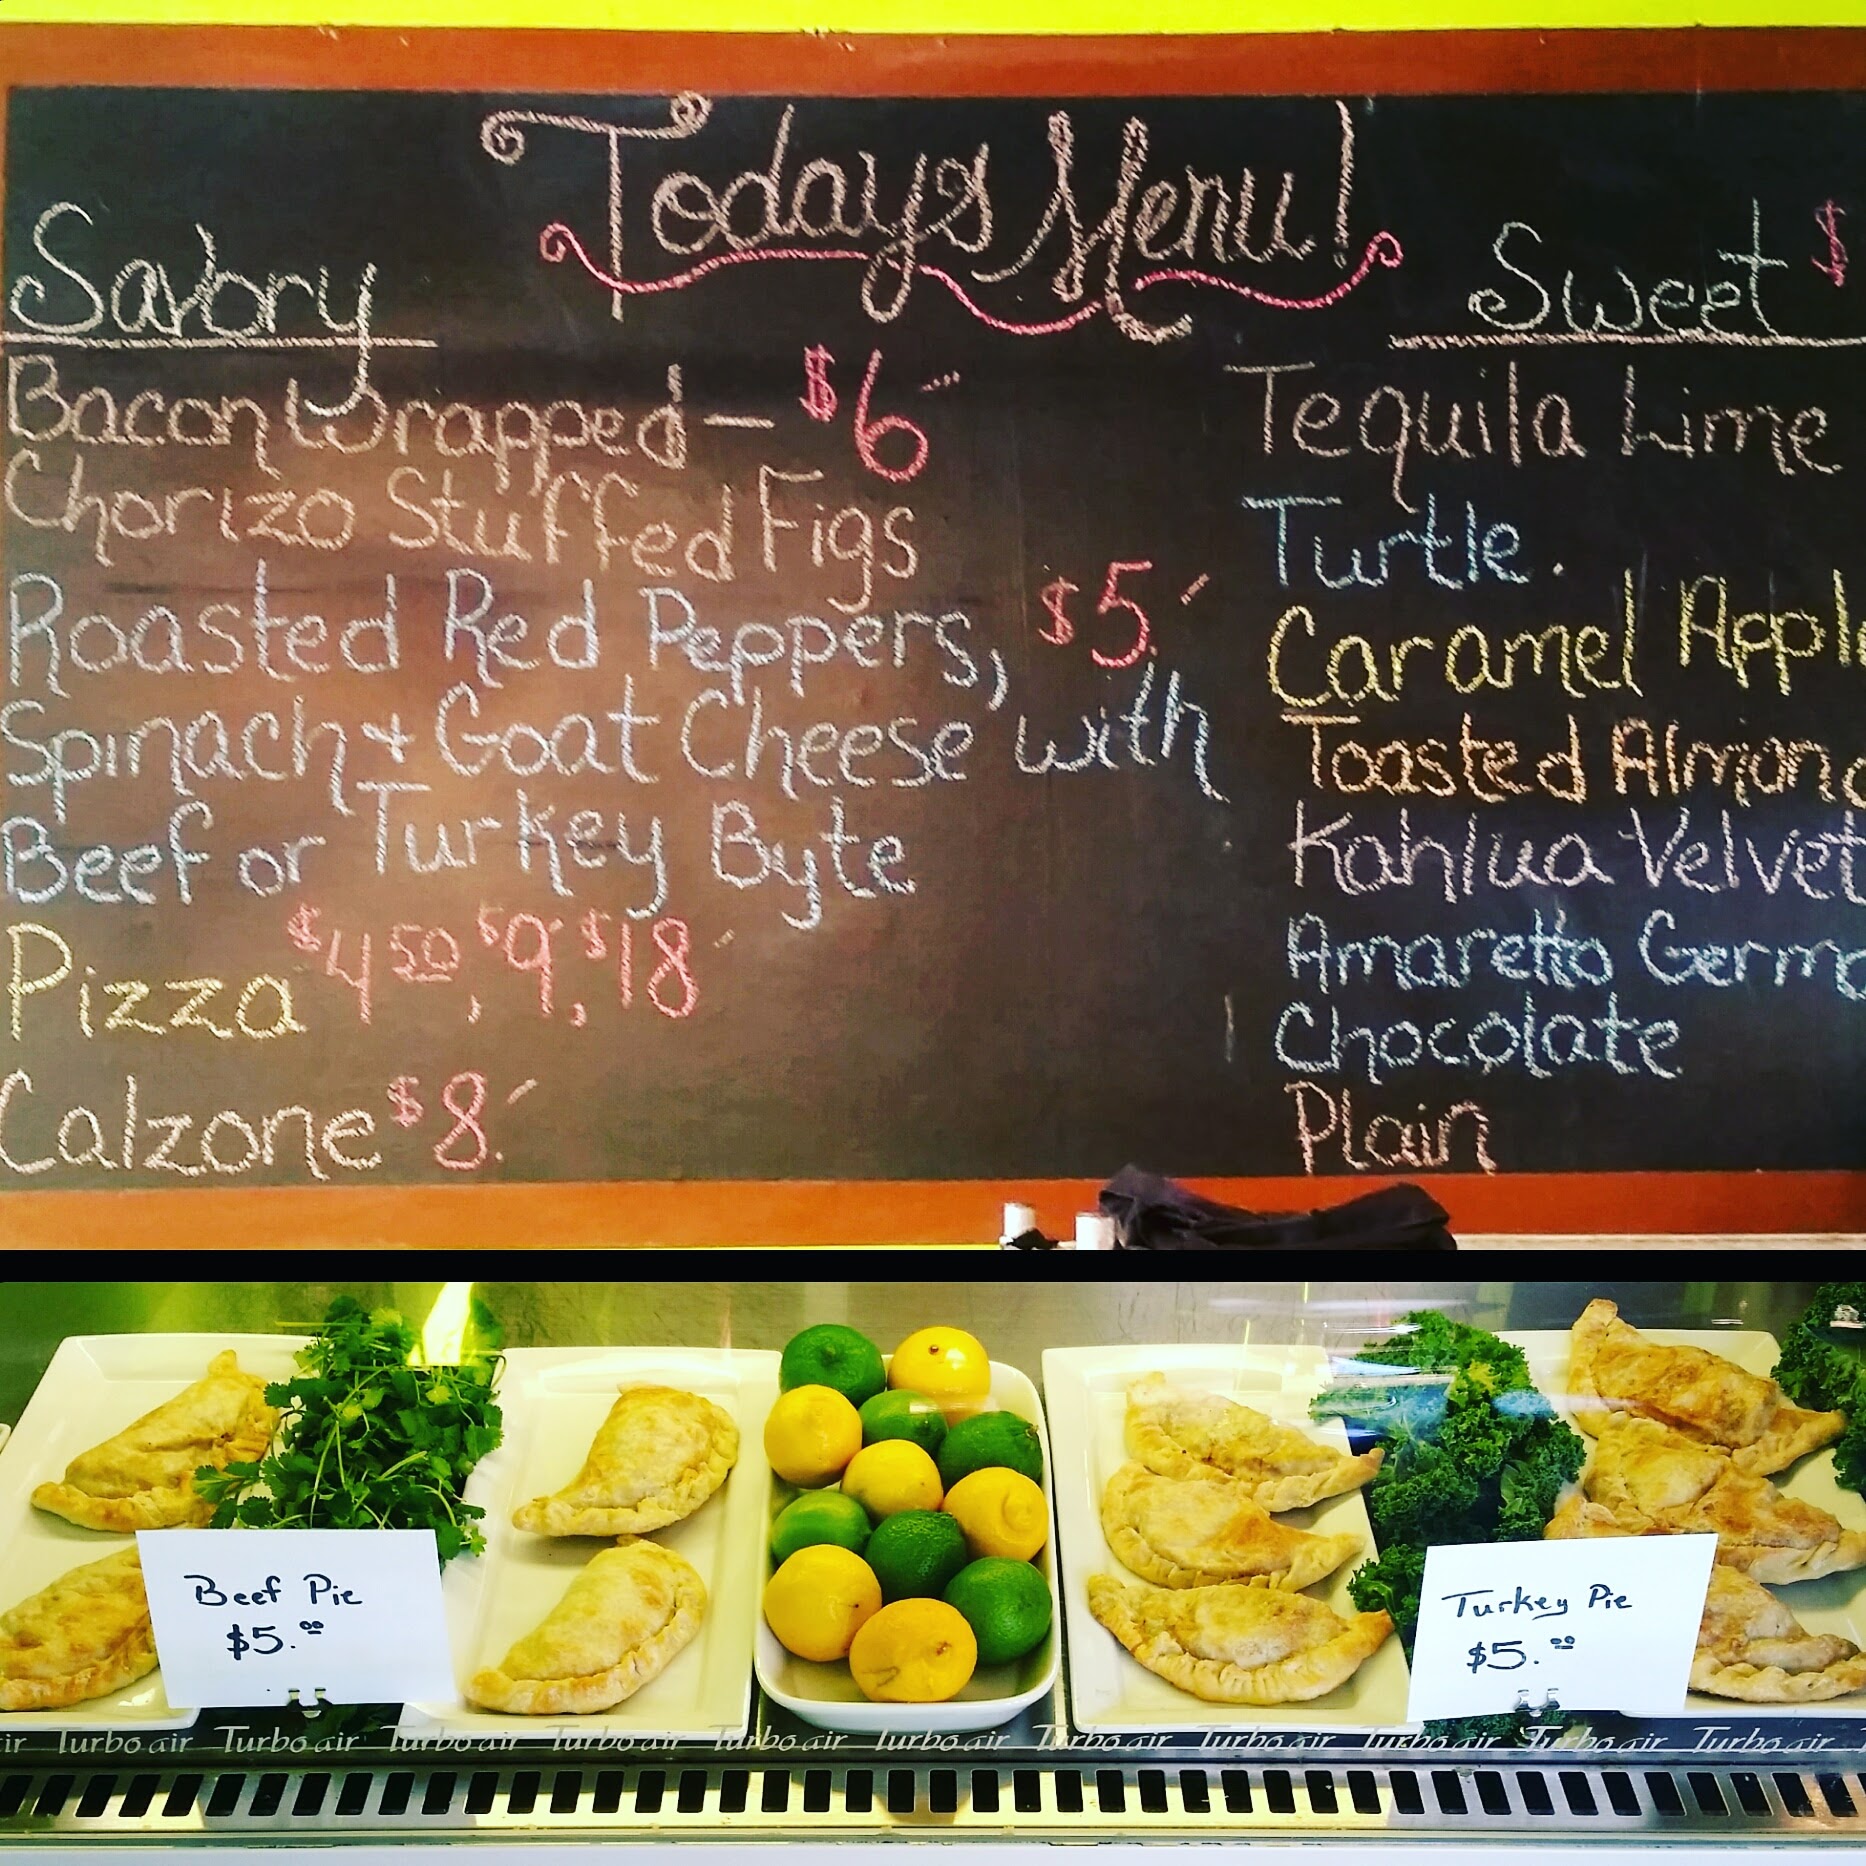 Todays Menu!
Savory
Bacon Wrapped — $6
Chorizo Stuffed Figs
Roasted Red Peppers, $5.
Spinach + Goat Cheese with
Beef or Turkey Byte
Pizza $4.50, $9, $18
Calzone $8.
Sweet $
Tequila Lime
Turtle.
Caramel Apple
Toasted Almond
Kahlua Velvet
Amaretto Germa
Chocolate
Plain
Beef Pie
$5.00
Turkey Pie
$5.00
air Turbo air Turbo air Turbo air Turbo air Turbo air Turbo air Turbo air Turbo air Turbo air Turbo air Turbo air